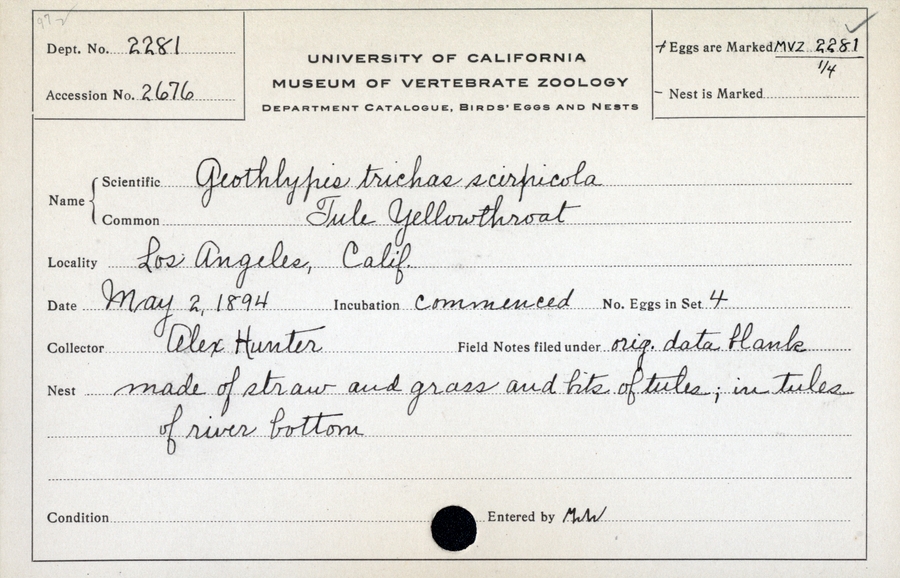 Dept. No. 2281
Accession No. 2676
UNIVERSITY OF CALIFORNIA
MUSEUM OF VERTEBRATE ZOOLOGY
DEPARTMENT CATALOGUE, BIRDS' EGGS AND NESTS
+ Eggs are Marked MVZ 2281
1/4
- Nest is Marked
Name { Scientific Geothlypis trichas scirpicola
Common Tule Yellowthroat
Locality Los Angeles, Calif.
Date May 2, 1894 Incubation commenced No. Eggs in Set 4
Collector Alex Hunter Field Notes filed under orig. data blank
Nest made of straw and grass and bits of tules; in tules
of river bottom
Condition Entered by